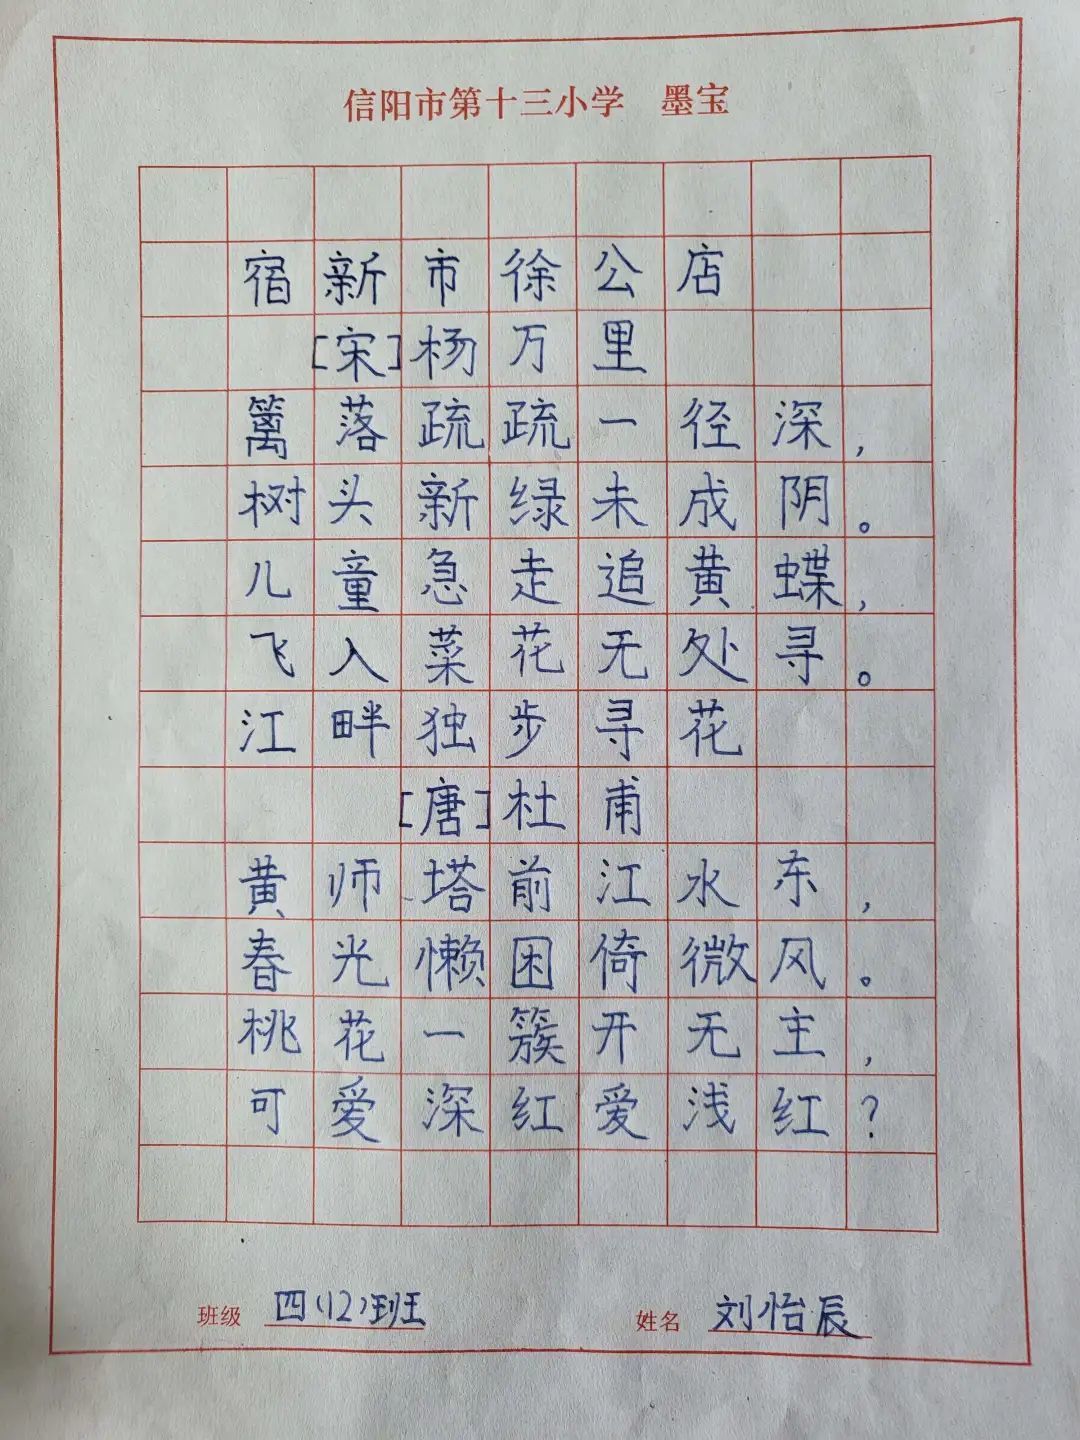 信阳市第十三小学 墨宝
宿新市徐公店
[宋]杨万里
篱落疏疏一径深，
树头新绿未成阴。
儿童急走追黄蝶，
飞入菜花无处寻。
江畔独步寻花
[唐]杜甫
黄师塔前江水东，
春光懒困倚微风。
桃花一簇开无主，
可爱深红爱浅红？
班级 四(12)班 姓名 刘怡辰